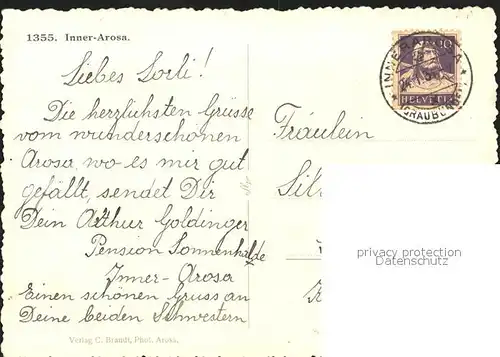 1355. Inner-Arosa.
Liebes Sorli!
Die herzlichsten Grüsse
vom wunderschönen
Arosa, wo es mir gut
gefällt, sendet Dir
Dein Arthur Goldinger
Pension Sonnenhalde
Inner-Arosa
Einen schönen Gruss an
Deine beiden Schwestern
Verlag C. Brandt, Phot. Arosa.
10
HELVETIA
INNERAROSA
(GRAUBÜNDEN)
Fräulein
privacy protection
Datenschutz